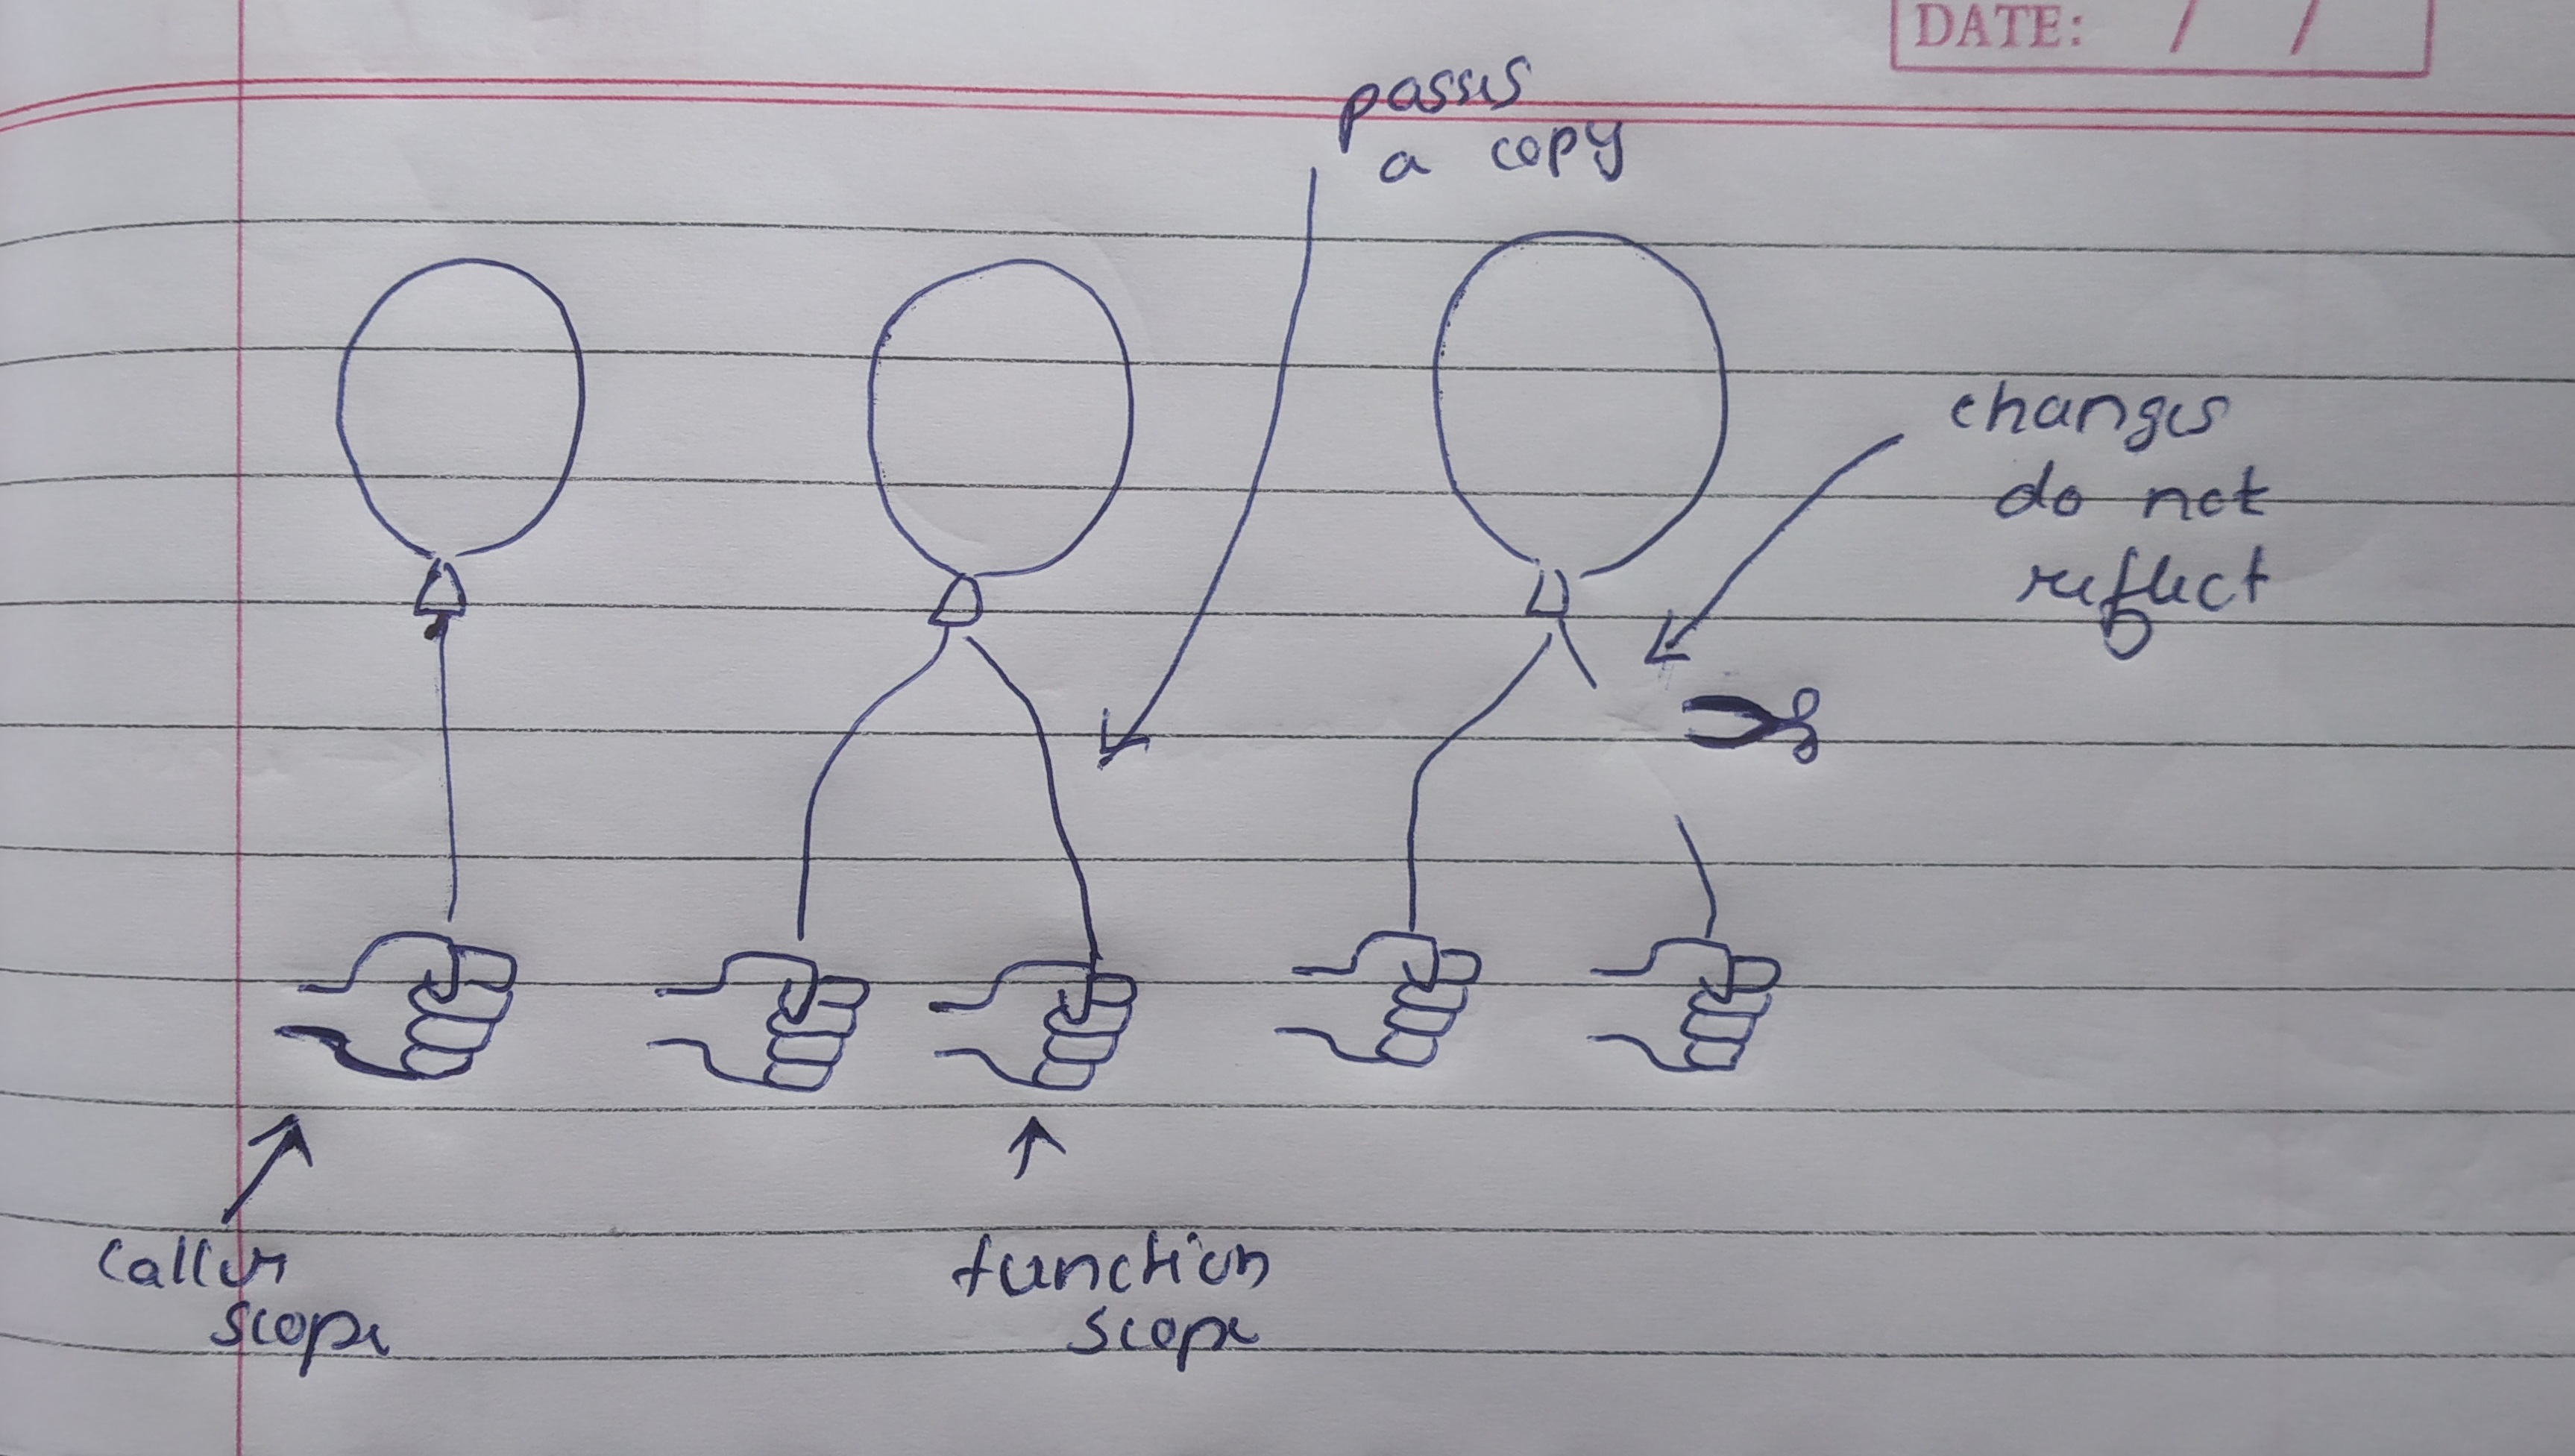 DATE: / /
passes
a copy
changes
do not
reflect
caller
scope
function
scope